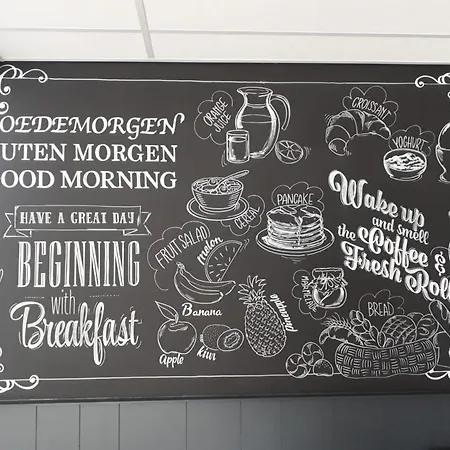 OEDEMORGEN
UTEN MORGEN
OOD MORNING
HAVE A GREAT DAY
BEGINNING
with
Breakfast
ORANGE
JUICE
CEREAL
FRUIT SALAD
melon
Banana
Apple
kiwi
Pineapple
PANCAKE
CROISSANT
YOGHURT
Wake up
and smell
the Coffee
&
Fresh Roll
BREAD